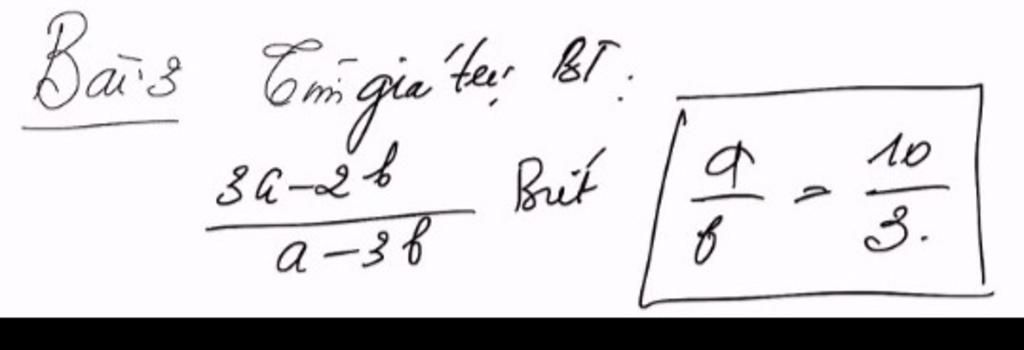 Bài 3 Tìm giá trị BT.
3a-2b / a-3b Biết a/b = 10/3.